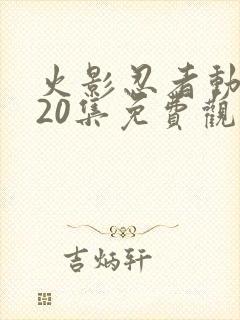 火影忍者動
20集免費觀
吉炳轩